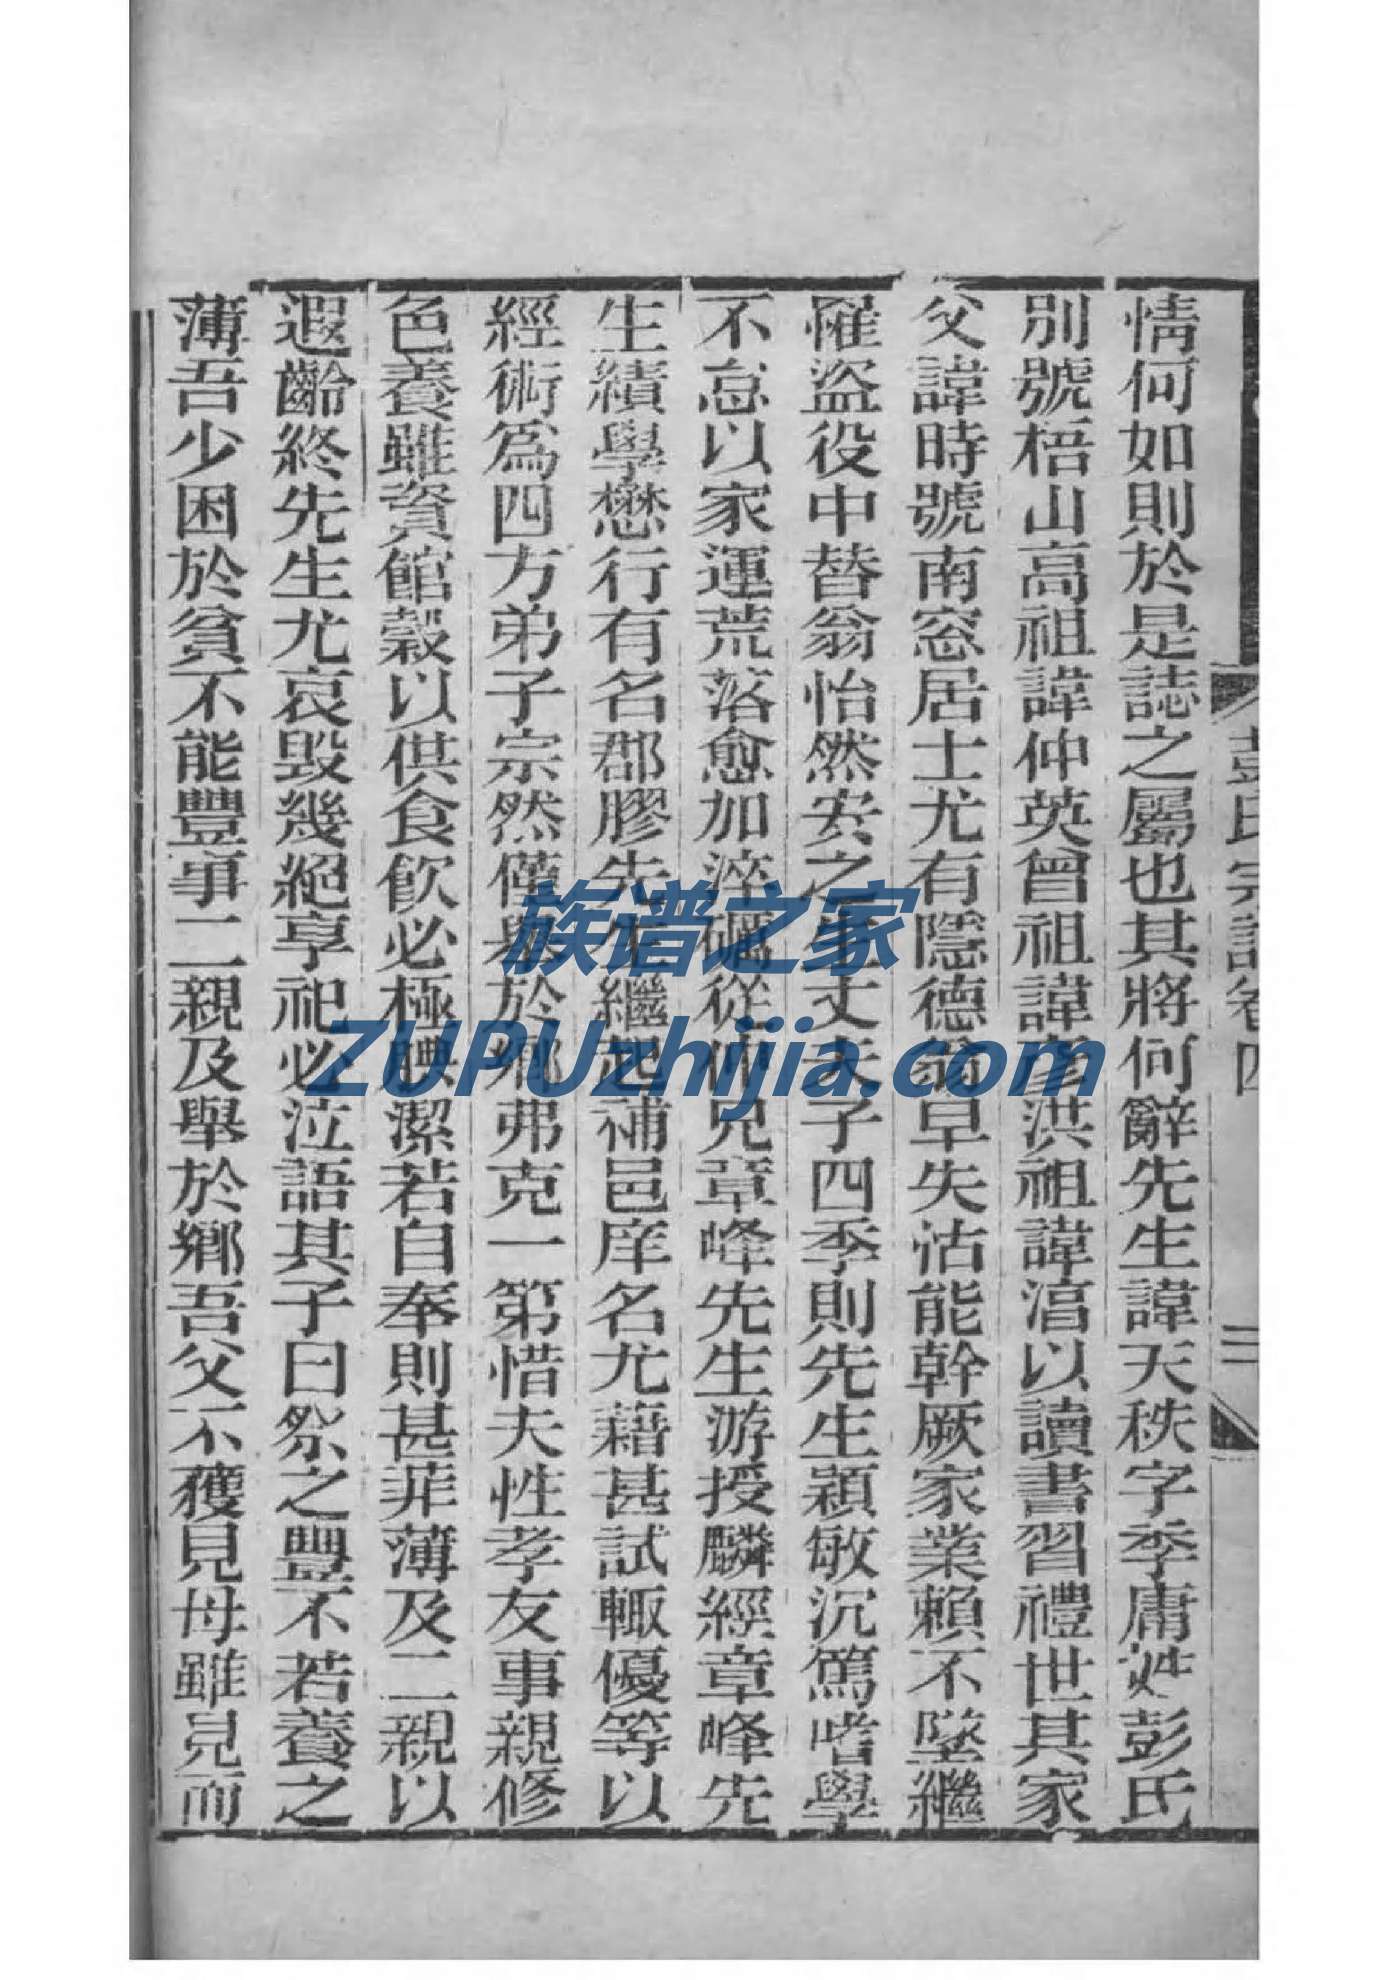 彭氏宗譜卷四
二
情何如則於是誌之屬也其將何辭先生諱天秩字季庸姓彭氏
別號梧山高祖諱仲英曾祖諱彥洪祖諱淯以讀書習禮世其家
父諱時號南窓居士尤有隱德翁早失怙能幹厥家業賴不墜繼
罹盜役中替翁怡然安之生丈夫子四季則先生穎敏沉篤嗜學
不怠以家運荒落愈加淬礪從仲兄章峰先生游授麟經章峰先
生績學懋行有名郡膠先生繼起補邑庠名尤藉甚試輙優等以
經術爲四方弟子宗然僅舉於鄉弗克一第惜夫性孝友事親修
色養雖資館穀以供食飲必極腆潔若自奉則甚菲薄及二親以
遐齡終先生尤哀毀幾絕享祀必泣語其子曰祭之豐不若養之
薄吾少困於貧不能豐事二親及舉於鄉吾父不獲見母雖見而
族谱之家
ZUPUzhijia.com